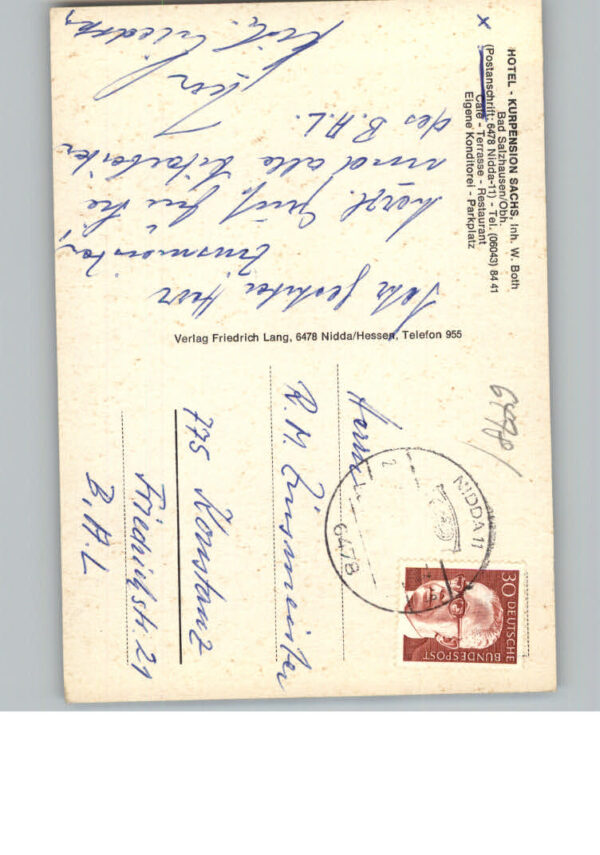 HOTEL - KURPENSION SACHS, Inh. W. Both
Bad Salzhausen/Obh.
(Postanschrift: 6478 Nidda-11) - Tel. (06043) 84 41
Café - Terrasse - Restaurant
Eigene Konditorei - Parkplatz
x
Sehr geehrter Herr
Zinsmeister,
herzl. Grüße für Sie
und alle Mitarbeiter
des B.H.L.
Ihr
Verlag Friedrich Lang, 6478 Nidda/Hessen, Telefon 955
6478/
Herrn
R. H. Zinsmeister
775 Konstanz
Friedrichstr. 21
B.H.L
NIDDA 11
6478
30 DEUTSCHE
BUNDESPOST